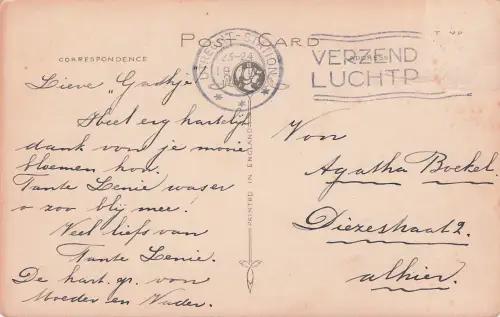 POST CARD
CORRESPONDENCE
ADDRESS
UTRECHT-STATION
VERZEND
LUCHTP
PRINTED IN ENGLAND
Lieve "Gadhje"
Heel erg hartelijk
dank voor je mooie
bloemen hoor.
Tante Lenie was er
o zoo blij mee!
Veel liefs van
Tante Lenie.
De hart. gr. van
Moeder en Vader.
Von
Agatha Boekel.
Diezestraat 2.
alhier.